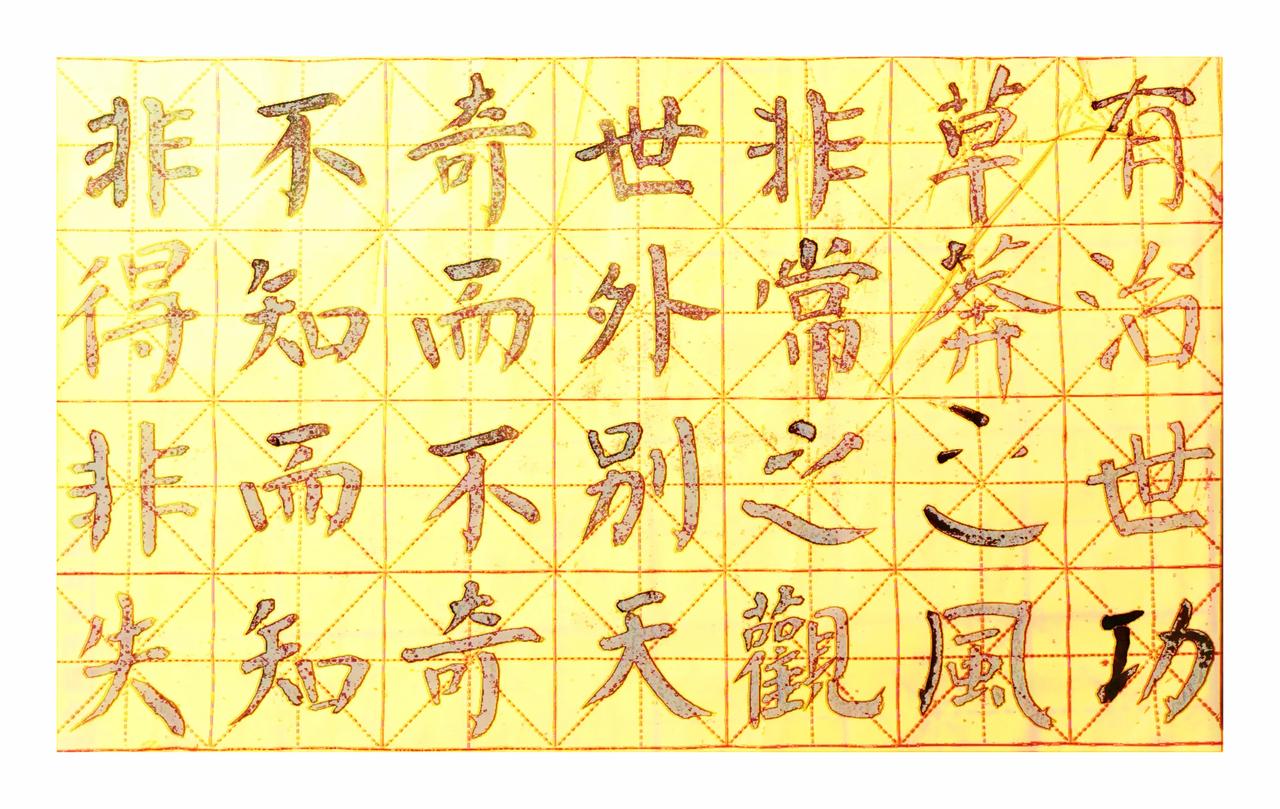 有治世功
草莽之風
非常之觀
世外別天
奇而不奇
不知而知
非得非失